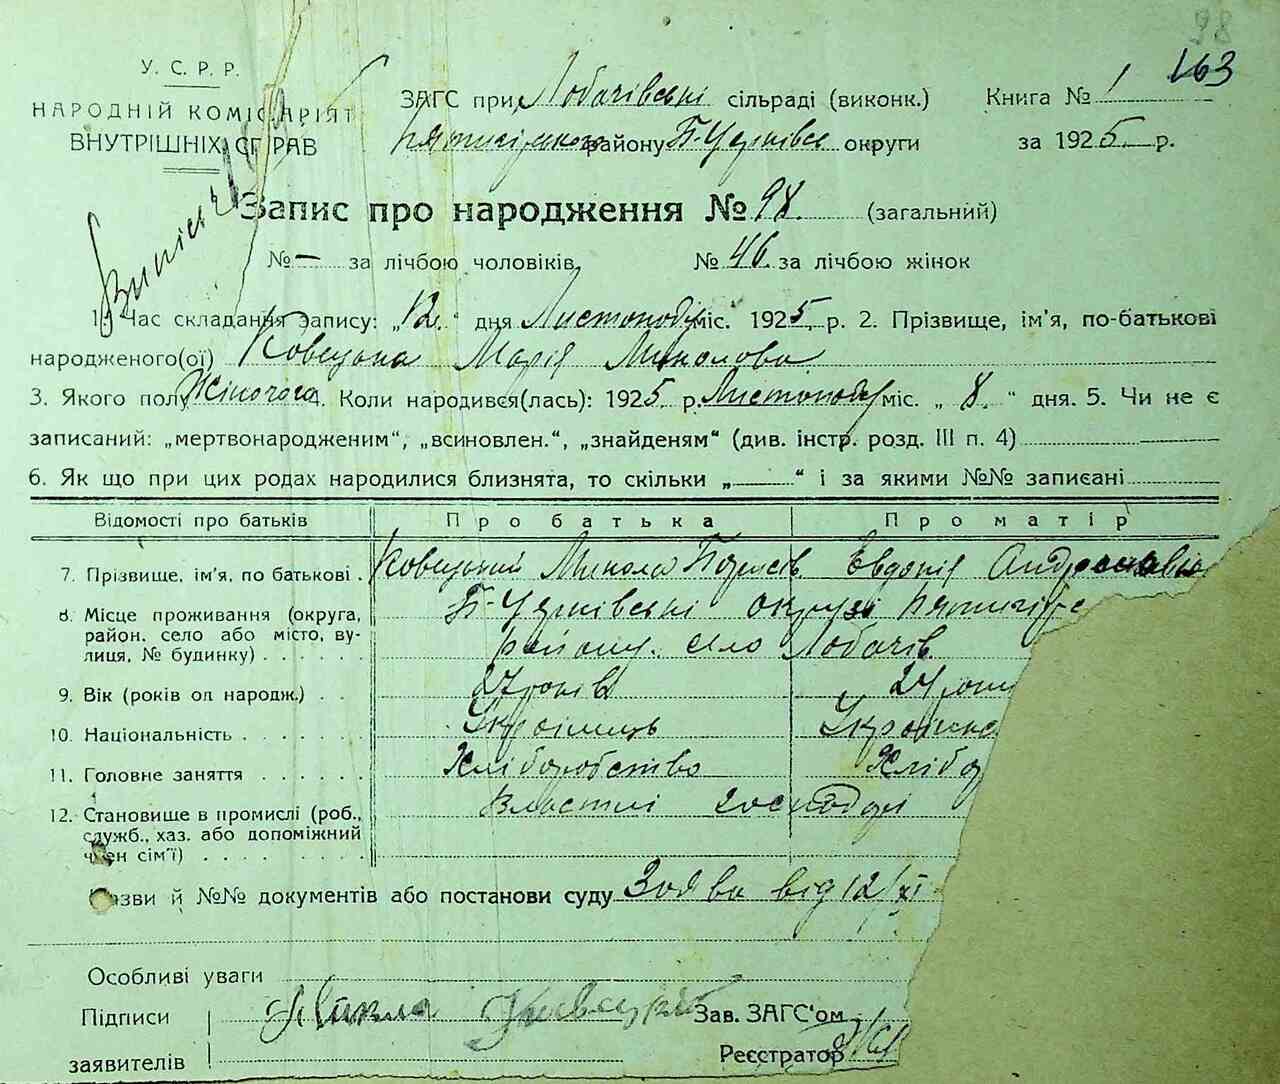 98
163
У. С. Р. Р.
НАРОДНІЙ КОМІСАРІЯТ
ВНУТРІШНІХ СПРАВ
ЗАГС при Лобачівські сільраді (виконк.) Книга № 1
району Б-Церківс округи за 1925 р.
Запис про народження № 98. (загальний)
№ — за лічбою чоловіків № 46 за лічбою жінок
1. Час складання запису: „12" дня Листопаду міс. 1925 р. 2. Прізвище, ім'я, по-батькові
народженого(ої) Марія Миколова
3. Якого полу Жіночого 4. Коли народився(лась): 1925 р. Листопаду міс. „ 8. " дня. 5. Чи не є
записаний: „мертвонародженим", „всиновлен.", „знайденям" (див. інстр. розд. III п. 4)
6. Як що при цих родах народилися близнята, то скільки „ " і за якими №№ записані
Відомості про батьків Про батька Про матір
7. Прізвище, ім'я, по батькові Микола Борисів Евдокія
8. Місце проживання (округа, Б-Церківські округі
район, село або місто, ву- району. село Лобачів.
лиця, № будинку)
9. Вік (років од народж.) 27 років 24
10. Національність Українець
11. Головне заняття Хліборобство Хлібо
12. Становище в промислі (роб., Властні господарі
служб., хаз. або допоміжний
член сім'ї)
Назви й №№ документів або постанови суду Заява від 12/XI
Особливі уваги
Підписи Микола Зав. ЗАГС'ом
заявителів Реєстратор